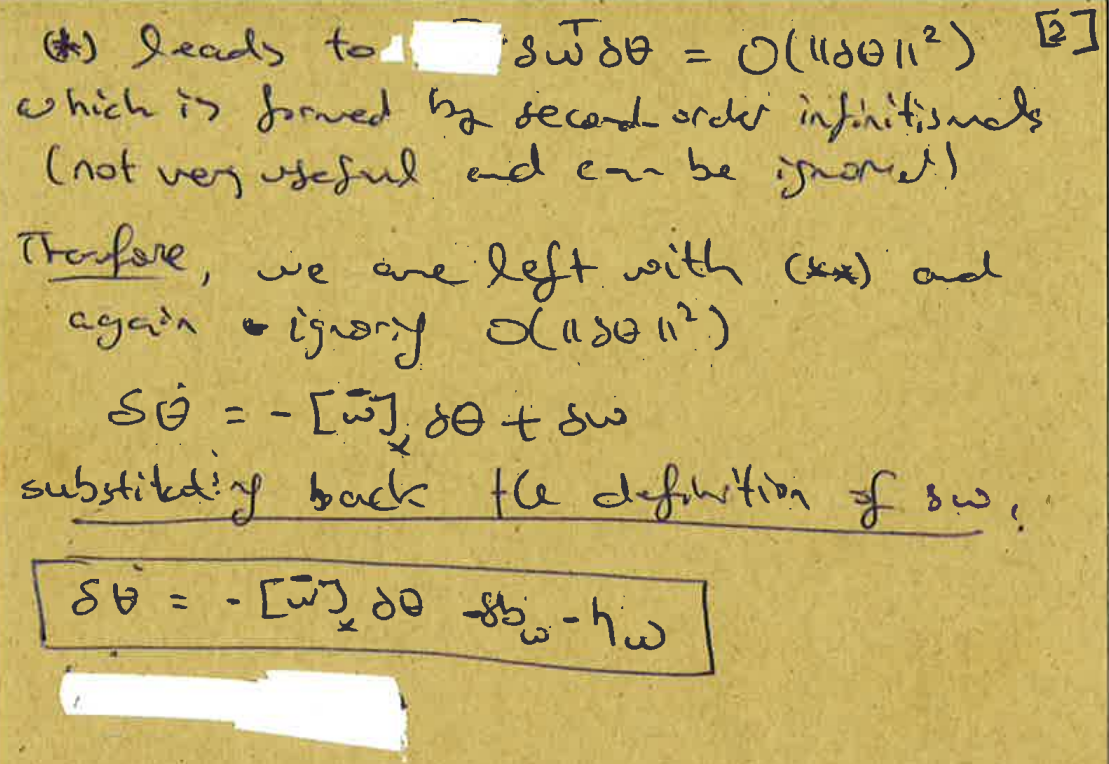 (*) leads to δω^T δθ = O(||δθ||²) [2]
which is formed by second order infinitismals
(not very useful and can be ignored)
Therefore, we are left with (**) and
again ignoring O(||δθ||²)
δθ̇ = -[ω̄]ₓ δθ + δω
substituting back the definition of δω,
δθ̇ = -[ω̄]ₓ δθ - δb_ω - η_ω